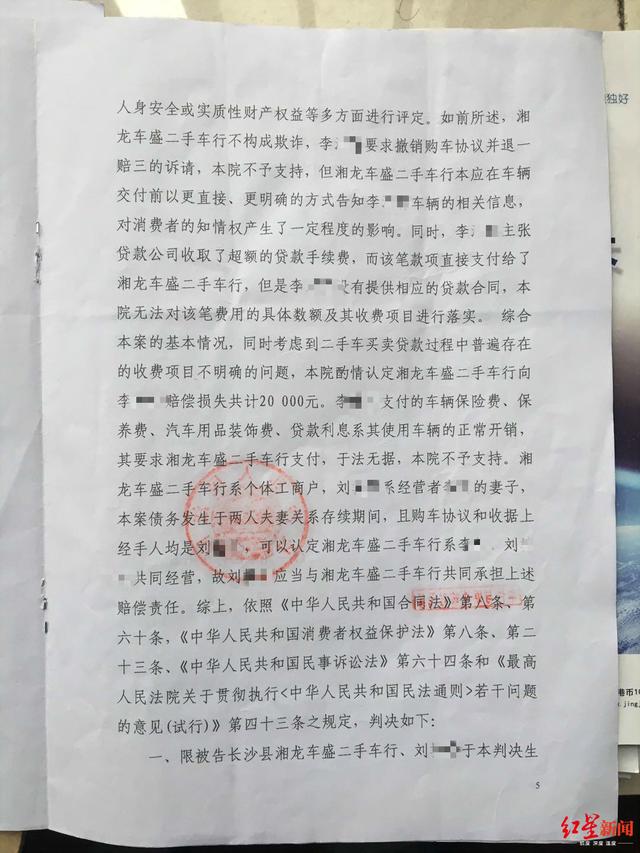 人身安全或实质性财产权益等多方面进行评定。如前所述，湘
龙车盛二手车行不构成欺诈，李 要求撤销购车协议并退一
赔三的诉请，本院不予支持，但湘龙车盛二手车行本应在车辆
交付前以更直接、更明确的方式告知李 车辆的相关信息，
对消费者的知情权产生了一定程度的影响。同时，李 主张
贷款公司收取了超额的贷款手续费，而该笔款项直接支付给了
湘龙车盛二手车行，但是李 没有提供相应的贷款合同，本
院无法对该笔费用的具体数额及其收费项目进行落实。 综合
本案的基本情况，同时考虑到二手车买卖贷款过程中普遍存在
的收费项目不明确的问题，本院酌情认定湘龙车盛二手车行向
李 赔偿损失共计20 000元。李 支付的车辆保险费、保
养费、汽车用品装饰费、贷款利息系其使用车辆的正常开销，
其要求湘龙车盛二手车行支付，于法无据，本院不予支持。湘
龙车盛二手车行系个体工商户，刘 系经营者 的妻子，
本案债务发生于两人夫妻关系存续期间，且购车协议和收据上
经手人均是刘 ，可以认定湘龙车盛二手车行系李 、刘
共同经营，故刘 应当与湘龙车盛二手车行共同承担上述
赔偿责任。综上，依照《中华人民共和国合同法》第八条、第
六十条，《中华人民共和国消费者权益保护法》第八条、第二
十三条、《中华人民共和国民事诉讼法》第六十四条和《最高
人民法院关于贯彻执行<中华人民共和国民法通则>若干问题
的意见(试行)》第四十三条之规定，判决如下：
一、限被告长沙县湘龙车盛二手车行、刘 于本判决生
5
独好
港币10
www.jing
红星新闻
红度 深度 温度